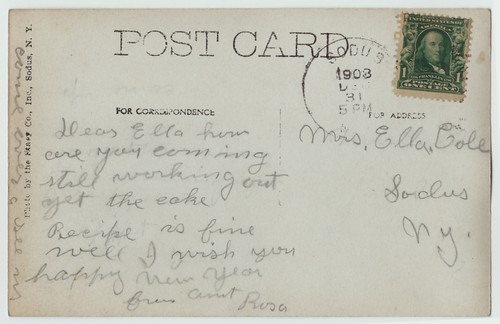 POST CARD
SODUS
1908
DEC
31
5 PM
UNITED STATES
1
ONE CENT
FOR CORRESPONDENCE
FOR ADDRESS
Dear Ella how
are you coming
still working out
yet the cake
Recipe is fine
well I wish you
happy New Year
from aunt
Rosa
Mrs. Ella Cole
Sodus
N.Y.
Photo by the Co., Inc., Sodus, N. Y.
come over &